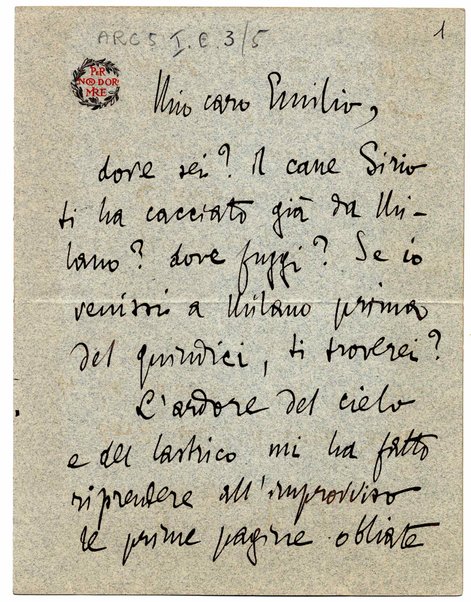 ARC 5 I.C. 3/5
1
PER
NON DOR
MIRE
Mio caro Emilio,
dove sei? il cane Sirio
ti ha cacciato già da Mi-
lano? dove fuggi? Se io
venissi a Milano prima
del quindici, ti troverei?
L'ardore del cielo
e del lastrico mi ha fatto
riprendere all'improvviso
le prime pagine obliate